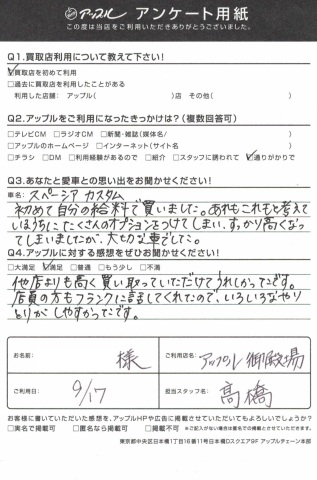 アップル アンケート用紙
この度は当店をご利用いただきありがとうございました。
Q1.買取店利用について教えて下さい!
☑買取店を初めて利用
□過去に買取店を利用したことがある
利用した店舗: アップル( )店 その他( )
Q2.アップルをご利用になったきっかけは?(複数回答可)
□テレビCM □ラジオCM □新聞・雑誌(媒体名/ )
□アップルのホームページ □インターネット(サイト名 )
□チラシ □DM □利用経験があるので □紹介 □スタッフに誘われて ☑通りがかりで
Q3.あなたと愛車との思い出をお聞かせください!
車名: スペーシア カスタム
初めて自分の給料で買いました。あれもこれもと考えて
いるうちにたくさんのオプションをつけてしまい、すっかり高くなって
しまいましたが、大切な車でした。
Q4.アップルに対する感想をぜひお聞かせください!
□大満足 ☑満足 □普通 □もう少し □不満
他店よりも高く買い取っていただけてうれしかったです。
店員の方もフランクに話してくれたので、いろいろなやり
とりがしやすかったです。
お名前: 様
ご利用店名: アップル御殿場
ご利用日: 9/17
担当スタッフ名: 高橋
お客様に書いていただいた感想を、アップルHPや広告に掲載させていただいてもよろしいでしょうか?
□実名で掲載可 □匿名なら掲載可 □掲載不可 ※ご記入がない場合は匿名での掲載とさせていただきます。
東京都中央区日本橋1丁目16番11号日本橋Dスクエア9F アップルチェーン本部